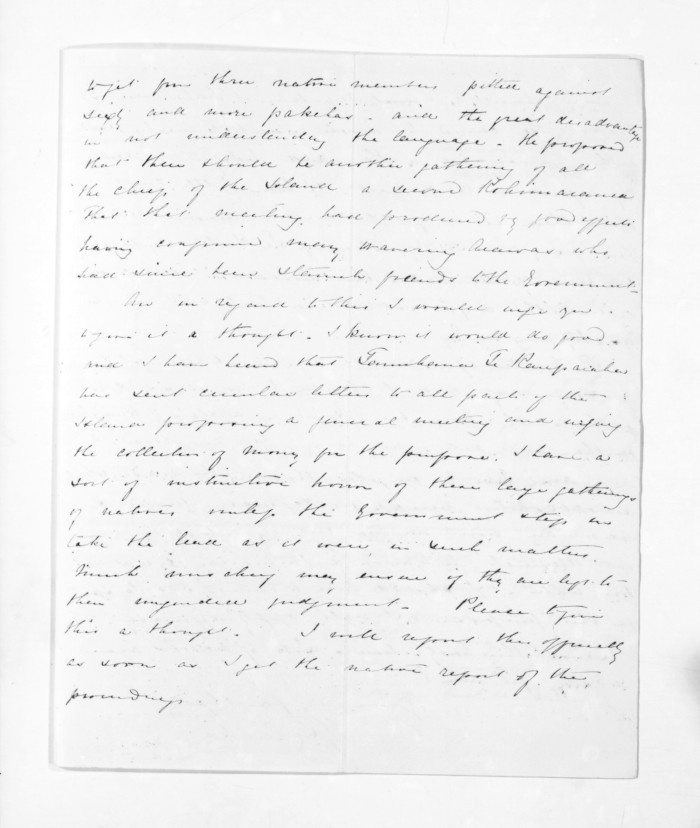 to get four three native members pitted against
sixty and more pakehas. and the great disadvantage
in not understanding the language. He proposed
that there should be another gathering of all
the chiefs of the Island a second Kohimarama
That that meeting had produced good effects
having confirmed many wavering Arawas who
had since been staunch friends to the Government.
Now in regard to this I would urge you
to give it a thought. I know it would do good.
and I have heard that Te Karepaiaka
has sent circular letters to all parts of the
Island proposing a general meeting and urging
the collection of money for the purpose. I have a
sort of instinctive horror of these large gatherings
of natives unless the Government steps in
take the lead as it were, in such matters.
Much mischief may ensue if they are left to
their unguided judgment. Please to give
this a thought. I will report this officially
as soon as I get the native report of the
proceedings.